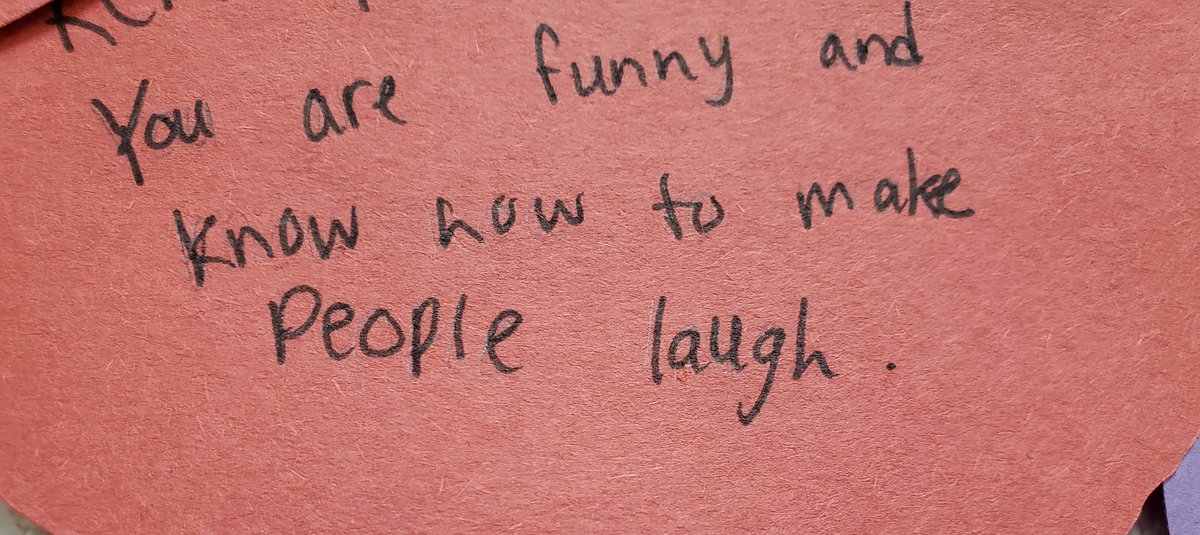 You are funny and
know how to make
people laugh.